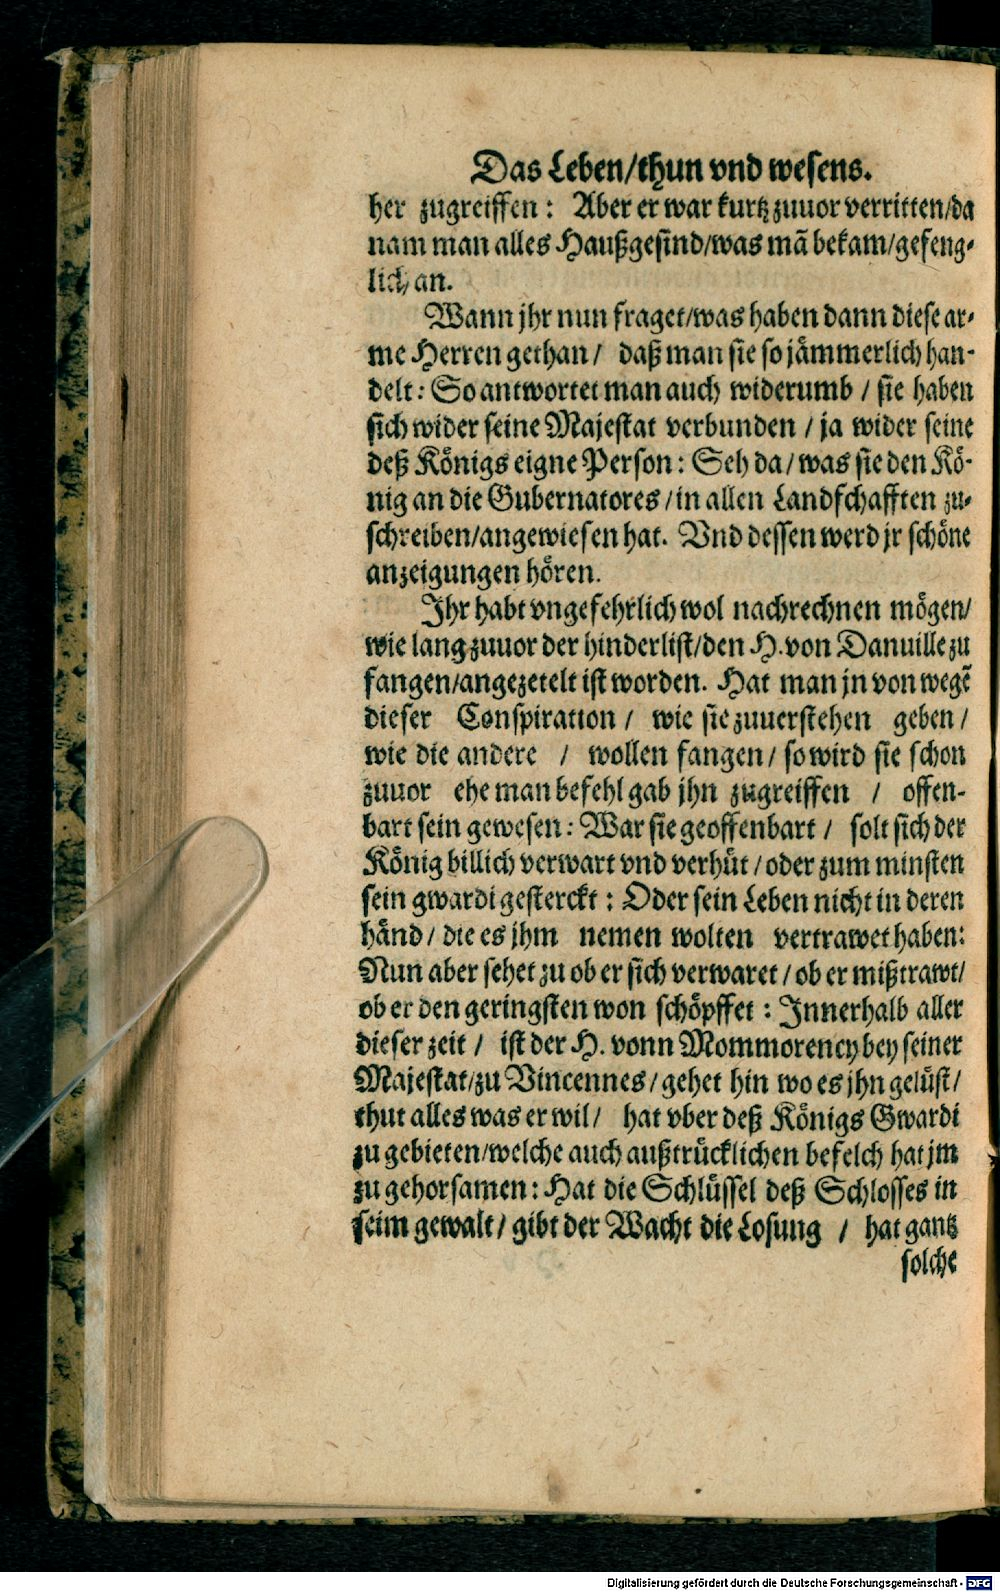 Das Leben/thun vnd wesens.
her zugreiffen: Aber er war kurtz zuuor verritten/da
nam man alles Haußgesind/was mã bekam/gefeng-
lich an.
Wann jhr nun fraget/was haben dann diese ar-
me Herren gethan/ daß man sie so jämmerlich han-
delt: So antwortet man auch widerumb / sie haben
sich wider seine Majestat verbunden / ja wider seine
deß Königs eigne Person: Seh da/ was sie den Kö-
nig an die Gubernatores/in allen Landschafften zu-
schreiben/angewiesen hat. Vnd dessen werd jr schöne
anzeigungen hören.
Ihr habt vngefehrlich wol nachrechnen mögen/
wie lang zuuor der hinderlist/den H. von Danuille zu
fangen/angezetelt ist worden. Hat man jn von wegẽ
dieser Conspiration / wie sie zuuerstehen geben /
wie die andere / wollen fangen / so wird sie schon
zuuor ehe man befehl gab jhn zugreiffen / offen-
bart sein gewesen: War sie geoffenbart / solt sich der
König billich verwart vnd verhüt / oder zum minsten
sein gwardi gesterckt: Oder sein Leben nicht in deren
händ / die es jhm nemen wolten vertrawet haben:
Nun aber sehet zu ob er sich verwaret / ob er mißtrawt/
ob er den geringsten won schöpffet: Innerhalb aller
dieser zeit / ist der H. vonn Mommorency bey seiner
Majestat/zu Vincennes / gehet hin wo es jhn gelüst/
thut alles was er wil/ hat vber deß Königs Gwardi
zu gebieten/welche auch außtrücklichen befelch hat jm
zu gehorsamen: Hat die Schlüssel deß Schlosses in
seim gewalt / gibt der Wacht die Losung / hat gantz
solche
Digitalisierung gefördert durch die Deutsche Forschungsgemeinschaft - DFG